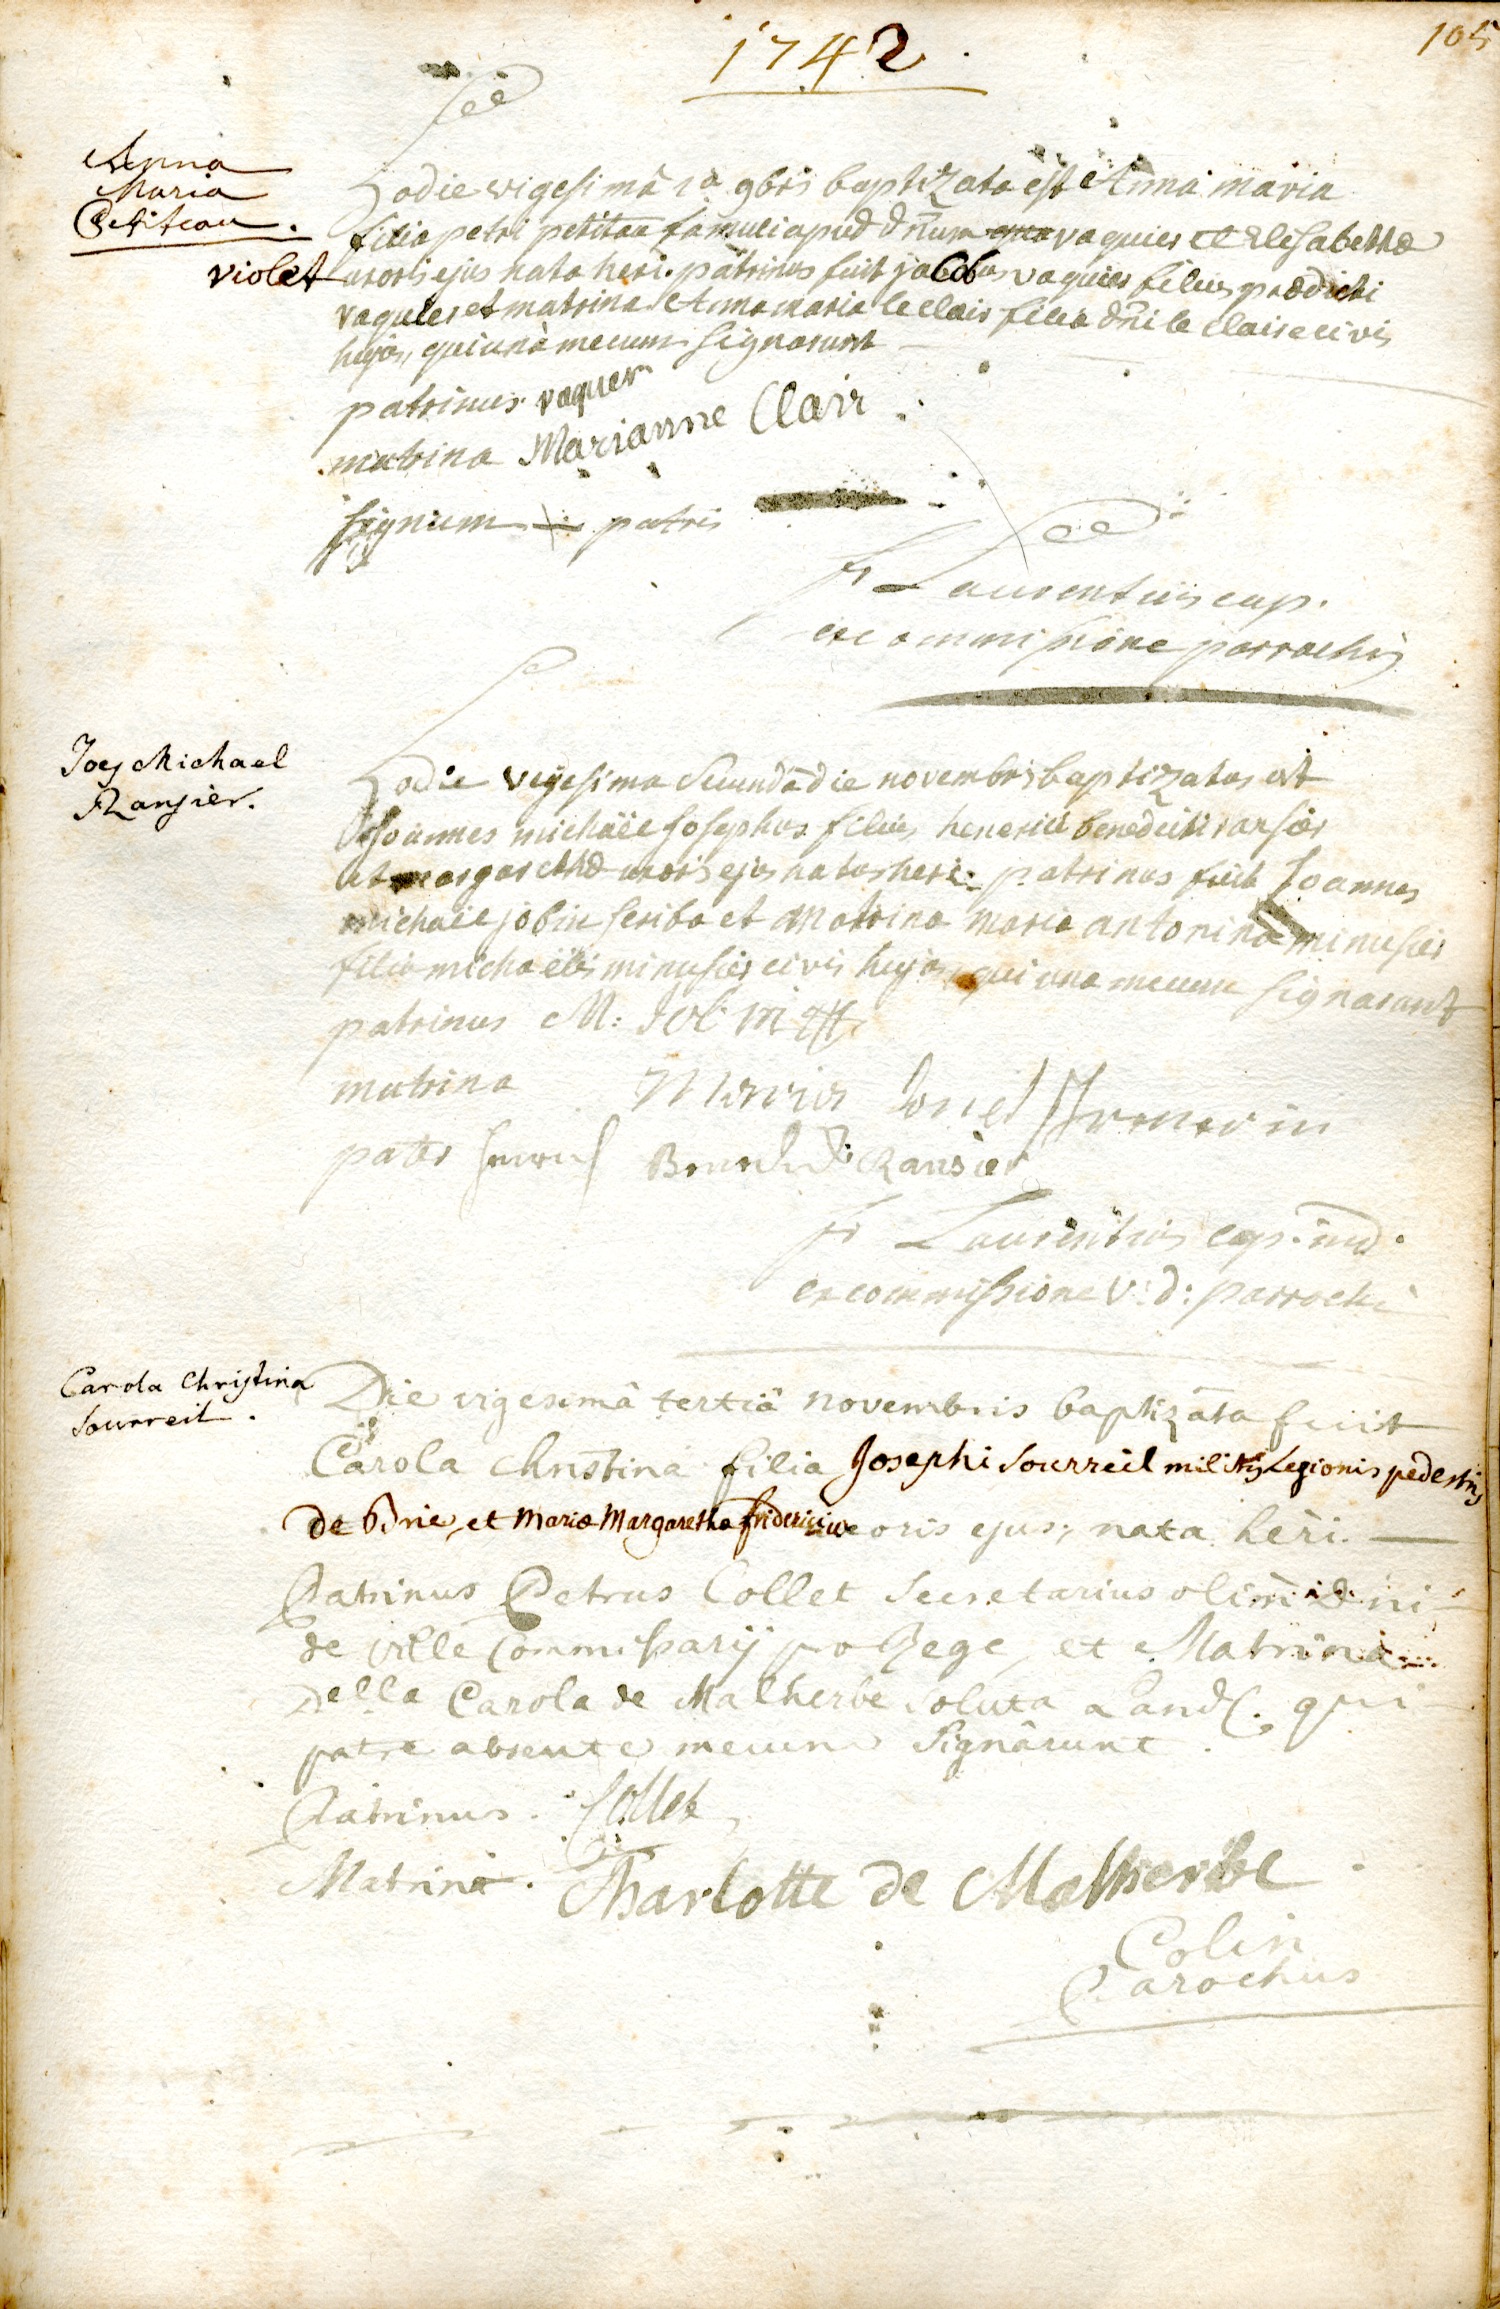 1742
105
Anna
Maria
Petiteau.
violet
Hodie vigesimâ 1â 9bris baptizata est Anna maria
filia petri petitau famuli apud dnum vaquier et Elisabethæ
uxoris ejus nata heri. patrinus fuit jacobus vaquier filius prædicti
vaquier et matrina Anna maria le clair filia dni le Claire civis
hujas, qui unà mecum signarunt
patrinus vaquer
matrina Marianne Clair
signum patris
fr Laurentius cap.
ex commissione parrochi
Joes Michael
Ransier.
Hodie vigesima secundâ die novembris baptizatus est
Joannes michaël Josephus filius henerici benedicti ransier
et margarethæ uxoris ejus natus heri. patrinus fuit Joannes
michaël jobin scriba et matrina maria antonina minusier
filia michaëlis minusier civis hujas, qui una mecum signarunt
patrinus M: Jobin
matrina Maria
pater Ransier
fr Laurentius cap. ind.
ex commissione v: d: parrochi
Carola Christina
Sourreil.
Die vigesimâ tertiâ novembris baptizata fuit
Carola Christina filia Josephi Sourreil militis Legionis pedestris
de Brie, et Mariæ Margarethæ friderici uxoris ejus, nata heri.
Patrinus Petrus Collet Secretarius olim Dni
de ville Commissarij pro Rege, et Matrina
Della Carola de Malherbe soluta a Land. qui
patre absente mecum signârunt.
Patrinus. Collet
Matrina. Charlotte de Malherbe
Colin
Parochus